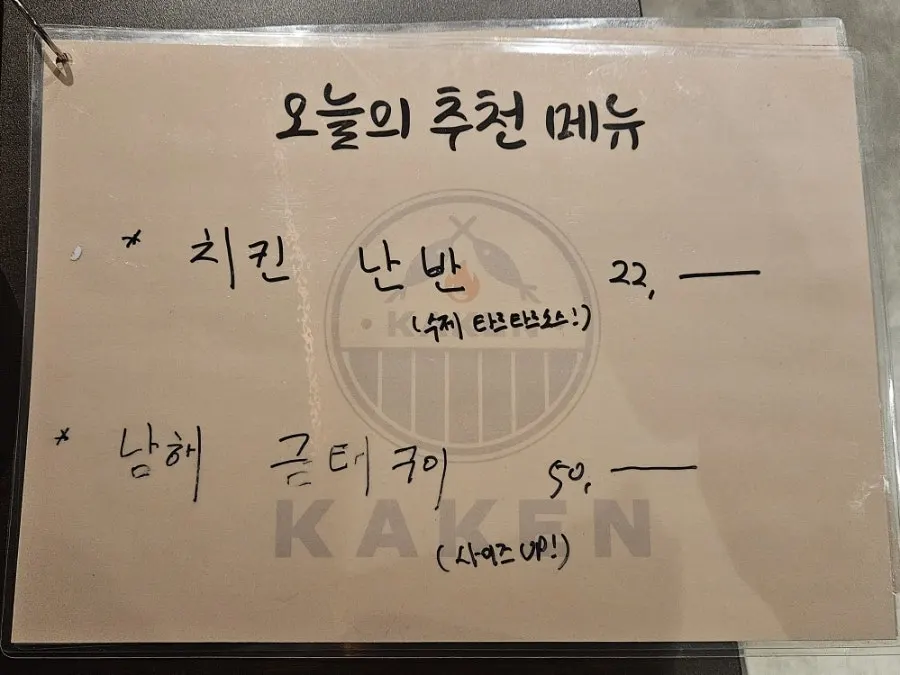 오늘의 추천 메뉴
* 치킨 난반 22,—
(수제 타르타르소스!)
KAKEN
* 남해 금태구이 50,—
KAKEN
(사이즈 UP!)